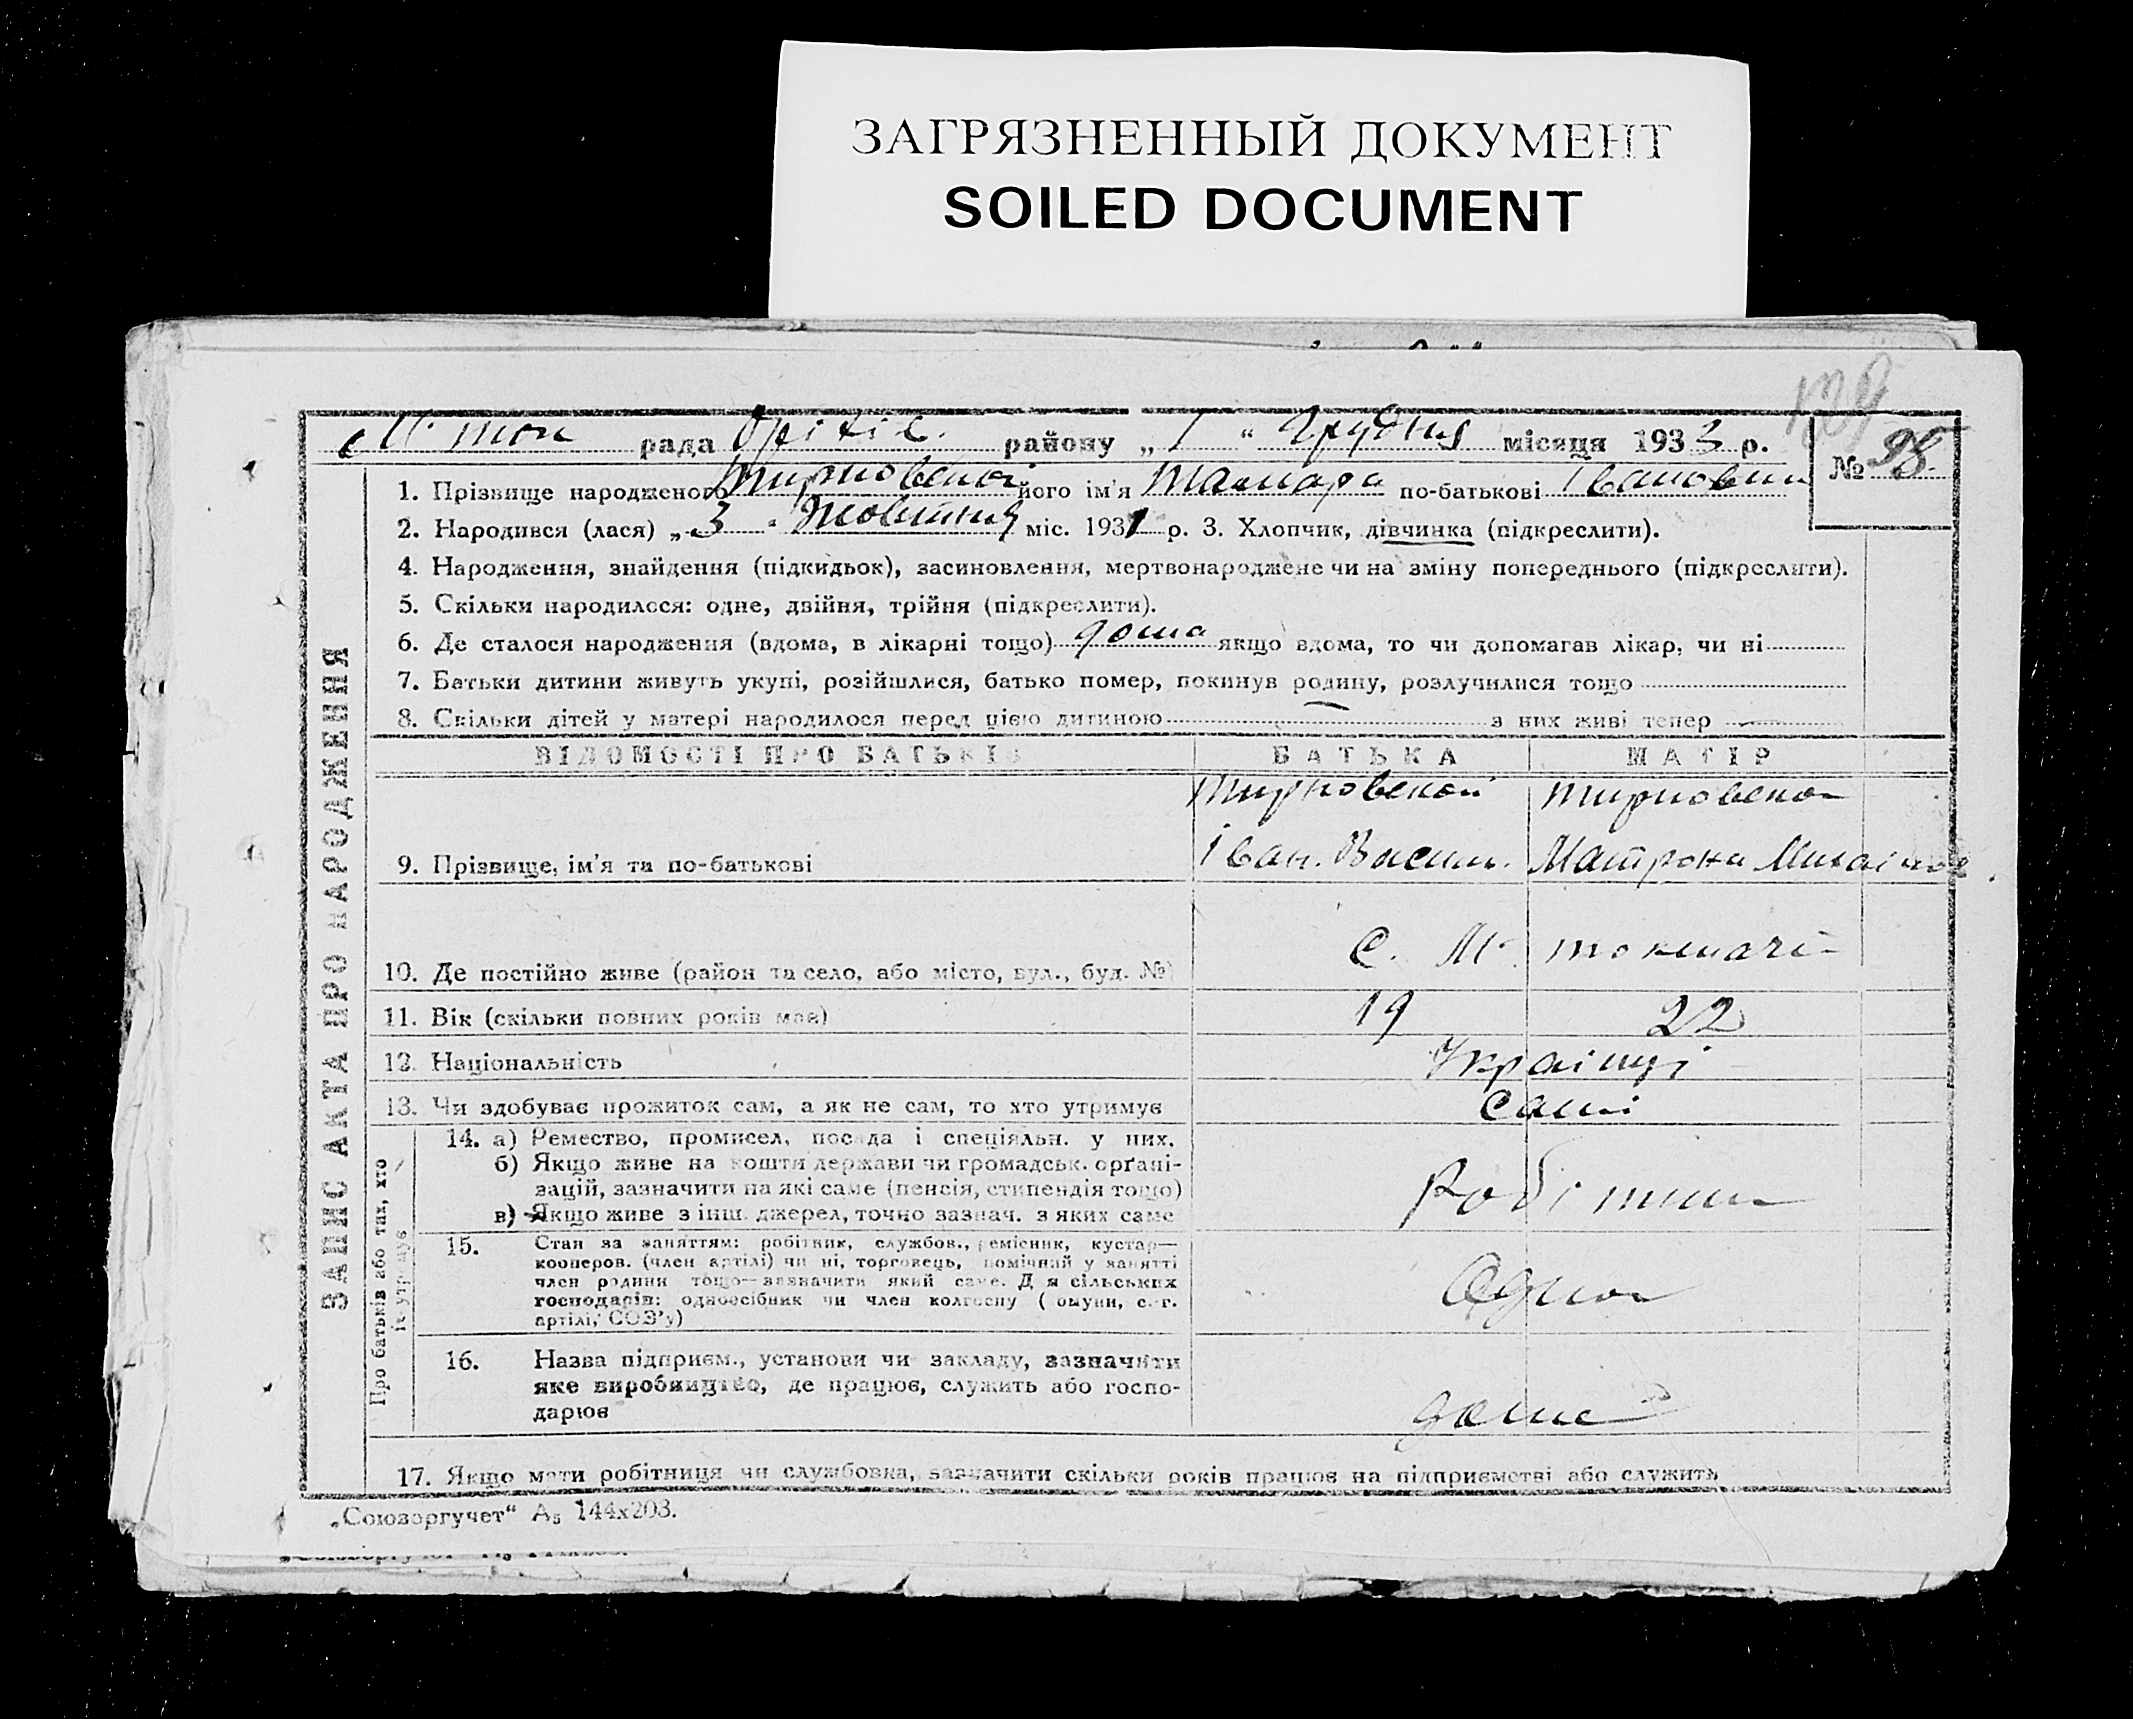 ЗАГРЯЗНЕННЫЙ ДОКУМЕНТ
SOILED DOCUMENT
М. Ток рада Оріхів. району „ 1 “ Грудня місяця 1933 р.
№ 98
1. Прізвище народженого його ім'я Тамара по-батькові Івановна
2. Народився (лася) „ 3 “ Жовтня міс. 1931 р. 3. Хлопчик, дівчинка (підкреслити).
4. Народження, знайдення (підкидьок), засиновлення, мертвонароджене чи на зміну попереднього (підкреслити).
5. Скільки народилося: одне, двійня, трійня (підкреслити).
6. Де сталося народження (вдома, в лікарні тощо) дома якщо вдома, то чи допомагав лікар, чи ні
7. Батьки дитини живуть укупі, розійшлися, батько помер, покинув родину, розлучилися тощо
8. Скільки дітей у матері народилося перед цією дитиною — з них живі тепер —
ЗАПИС АКТА ПРО НАРОДЖЕННЯ
ВІДОМОСТІ ПРО БАТЬКІВ БАТЬКА МАТІР
9. Прізвище, ім'я та по-батькові Іван. Васил. Матрона Михайлов.
10. Де постійно живе (район та село, або місто, вул., буд. №) с. М. токмачк
11. Вік (скільки повних років має) 19 22
12. Національність Українці
13. Чи здобуває прожиток сам, а як не сам, то хто утримує Самі
Про батьків або тих, хто
їх утримує
14. а) Ремество, промисел, посада і спеціяльн. у них.
б) Якщо живе на кошти держави чи громадськ. орґані-
зацій, зазначити на які саме (пенсія, стипендія тощо)
в) Якщо живе з інш. джерел, точно зазнач. з яких саме
Робітник
15. Стан за заняттям: робітник, службов., ремісник, кустар—
кооперов. (член артілі) чи ні, торговець, помічний у занятті
член родини тощо—зазначити який саме. Для сільських
господарів: одноосібник чи член колгоспу (комуни, с.-г.
артілі, СОЗ'у)
16. Назва підприєм., установи чи закладу, зазначити
яке виробництво, де працює, служить або госпо-
дарює
доме
17. Якщо мати робітниця чи службовка, зазначити скільки років працює на підприємстві або служить
„Союзоргучет“ А₅ 144х203.